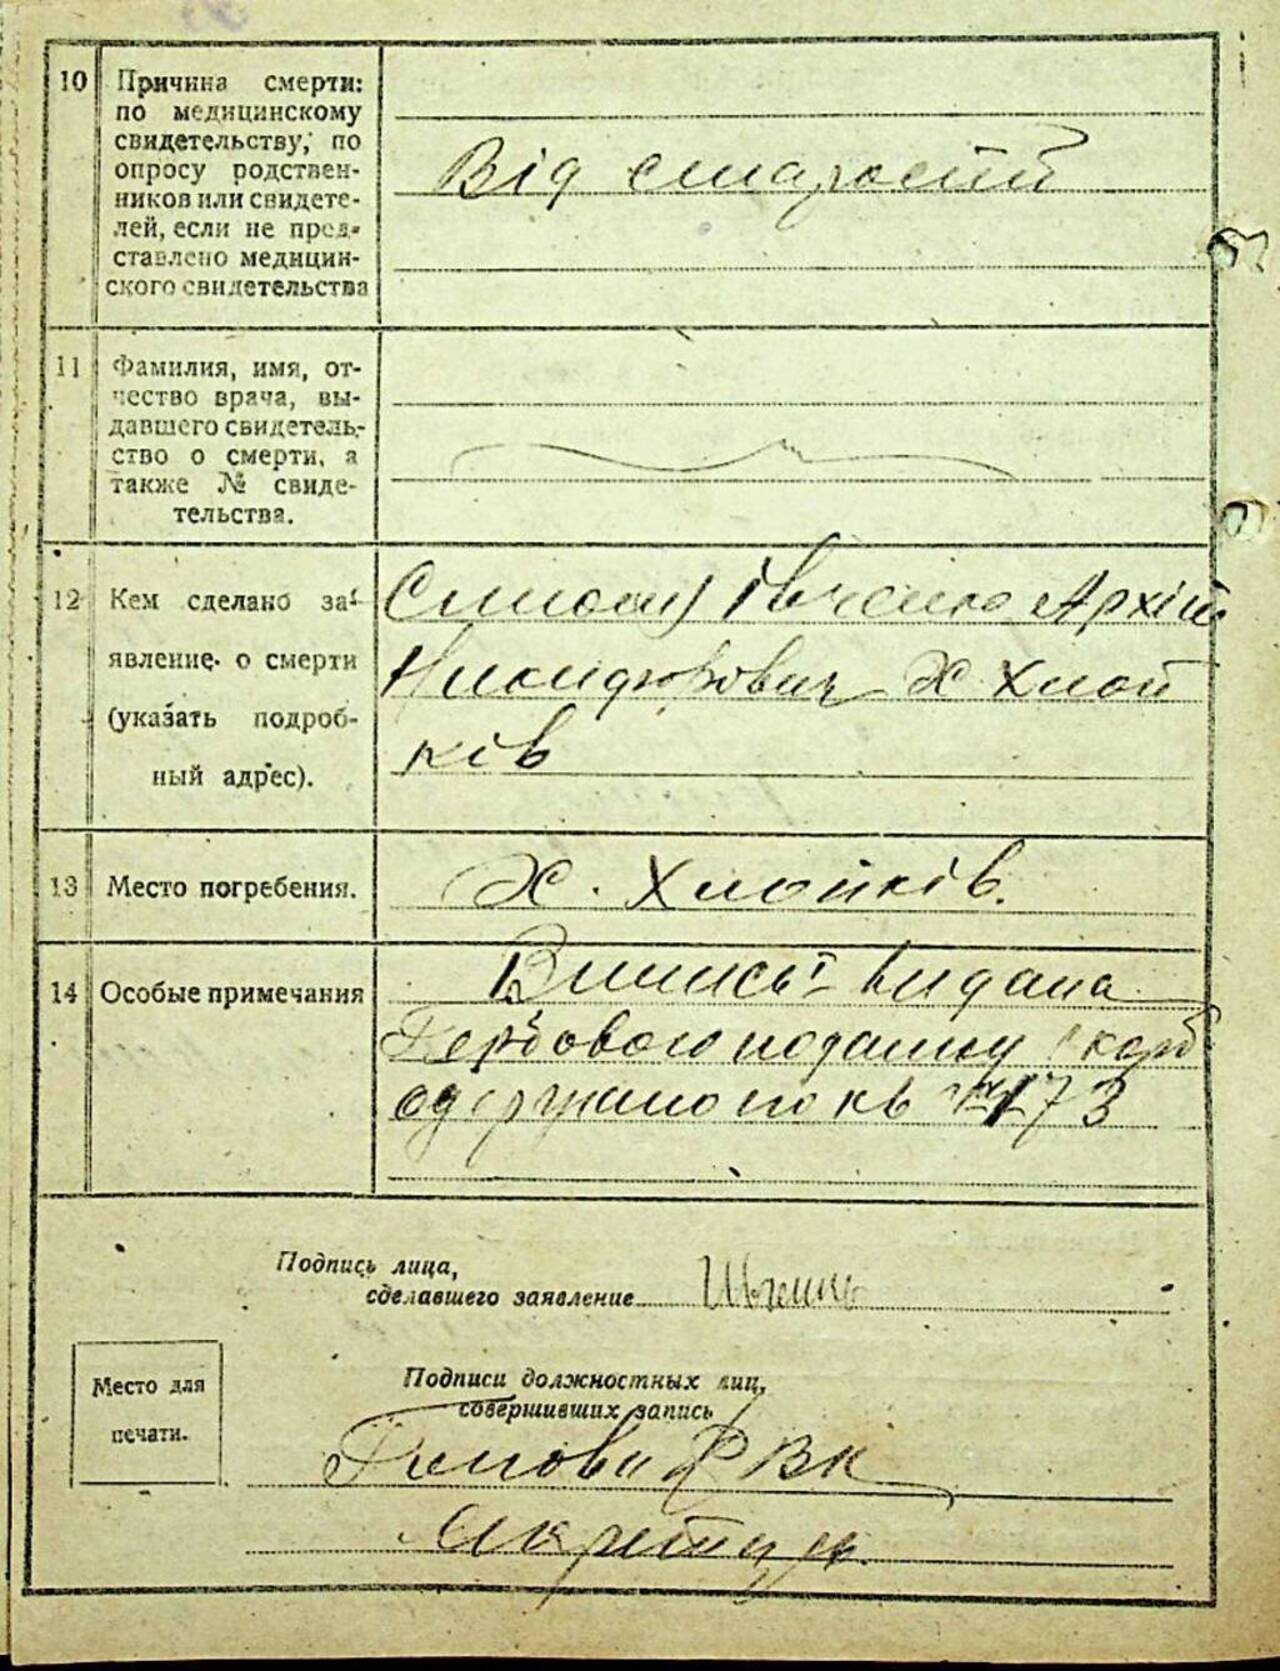 10 Причина смерти:
по медицинскому
свидетельству; по
опросу родствен-
ников или свидете-
лей, если не пред-
ставлено медицин-
ского свидетельства
Від старости
11 Фамилия, имя, от-
чество врача, вы-
давшего свидетель-
ство о смерти, а
также № свиде-
тельства.
12 Кем сделано за-
явление о смерти
(указать подроб-
ный адрес).
Івченко Архіп
Никифорович Х Хлоп
ків
13 Место погребения.
Х. Хлопків.
14 Особые примечания
Випись видана
Гербового податку 1 карб
одержано по кв № 173
Подпись лица,
сделавшего заявление
Ивченко
Место для
печати.
Подписи должностных лиц,
совершивших запись
Голова РВК
Секретарь